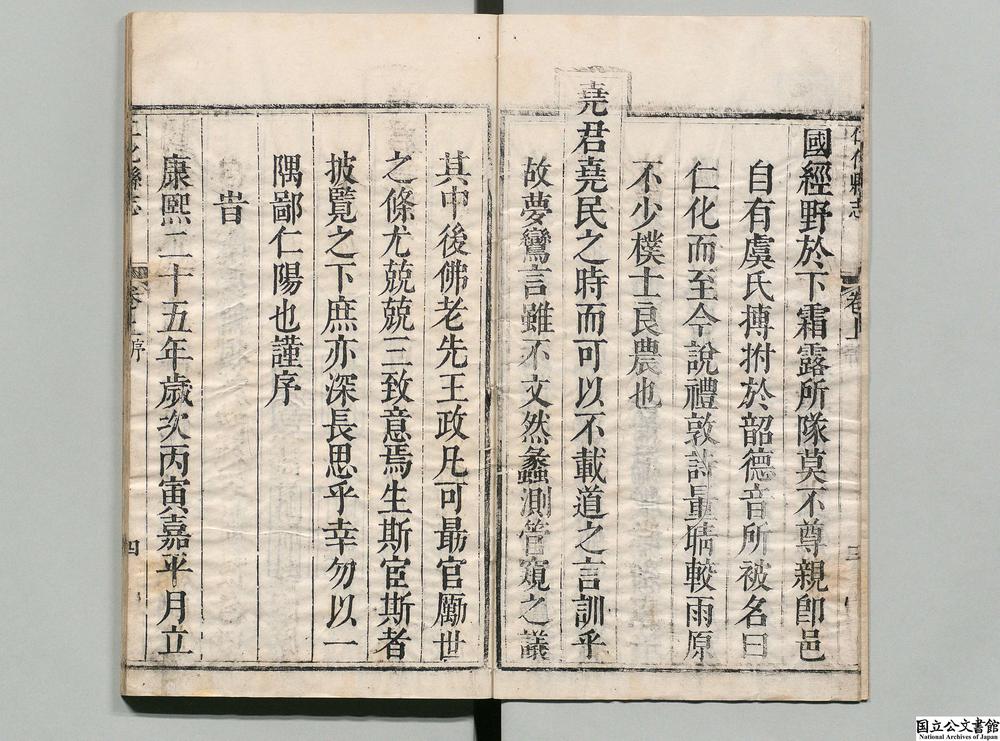 國經野於下霜露所隊莫不尊親卽邑
自有虞氏搏拊於韶德音所被名曰
仁化而至今說禮敦詩量晴較雨原
不少樸士良農也
堯君堯民之時而可以不載道之言訓乎
故夢鸞言雖不文然蠡測管窺之議
其中後佛老先王政凡可最官勵世
之條尤兢兢三致意焉生斯宦斯者
披覽之下庶亦深長思乎幸勿以一
隅鄙仁陽也謹序
旹
康熙二十五年歲次丙寅嘉平月立
仁化縣志
卷上
序
四
国立公文書館
National Archives of Japan